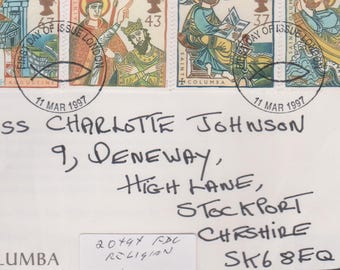 43 43 37
AUGUSTINE COLUMBA
FIRST DAY OF ISSUE LONDON FIRST DAY OF ISSUE LONDON
11 MAR 1997 11 MAR 1997
SS CHARLOTTE JOHNSON
9, DENEWAY,
HIGH LANE,
STOCKPORT
CHESHIRE
SK6 8EQ
RELIGION
LUMBA